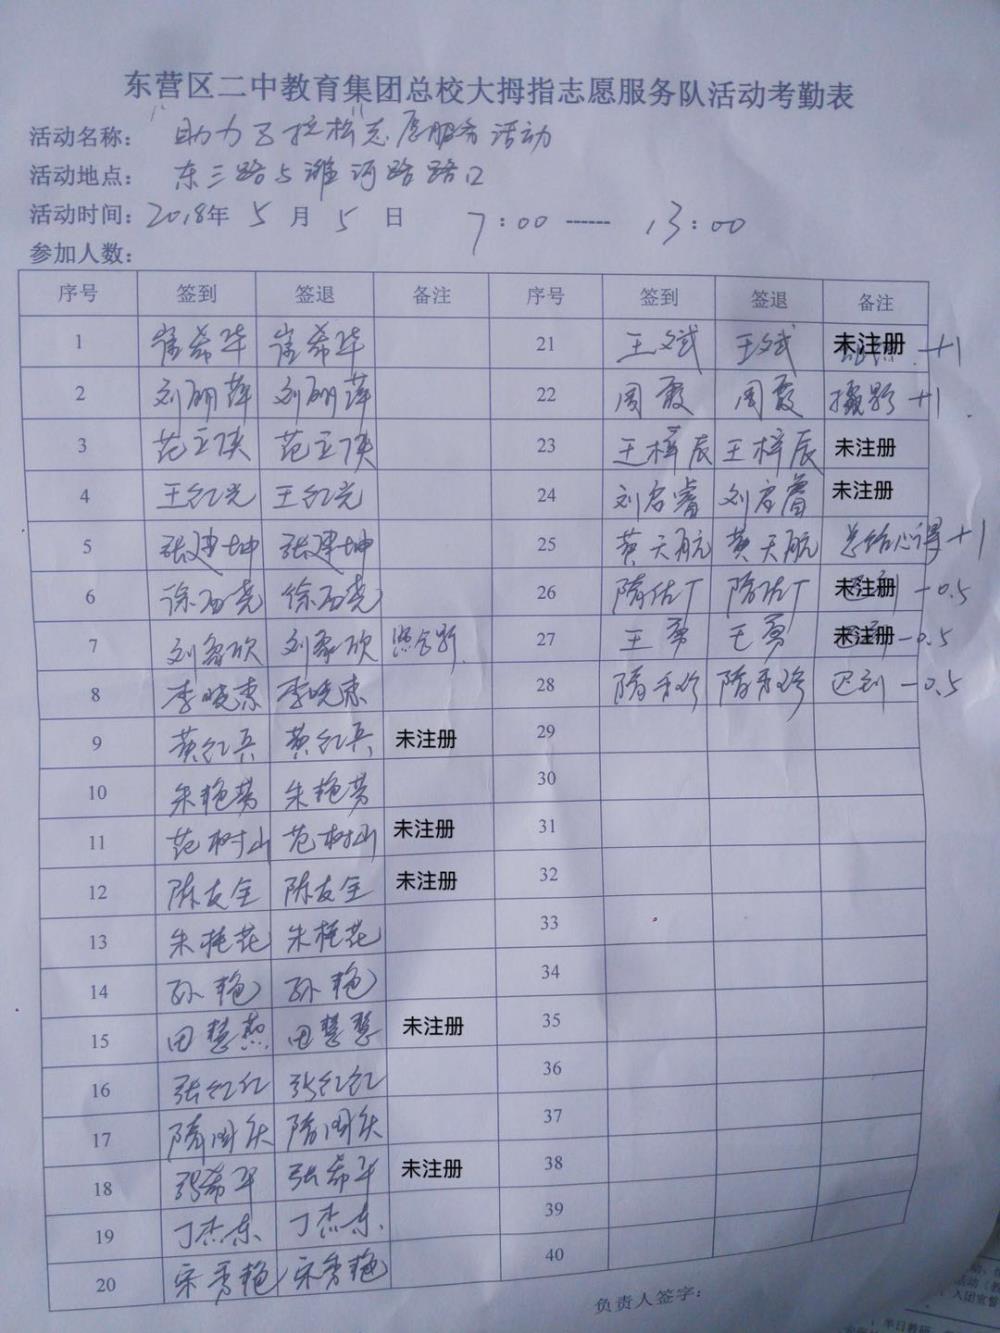 东营区二中教育集团总校大拇指志愿服务队活动考勤表
活动名称： "助力马拉松"志愿服务活动
活动地点： 东三路与潍河路路口
活动时间：2018年 5 月 5 日 7：00 ------ 13：00
参加人数：
序号 签到 签退 备注 序号 签到 签退 备注
1 崔希华 崔希华 21 王斌 王斌 未注册 +1
2 刘丽萍 刘丽萍 22 周霞 周霞 摄影 +1
3 范立侠 范立侠 23 王梓辰 王梓辰 未注册
4 王红光 王红光 24 刘启睿 刘启睿 未注册
5 张建坤 张建坤 25 黄天航 黄天航 总结心得 +1
6 徐尧 徐尧 26 隋佑丁 隋佑丁 未注册 -0.5
7 刘欣 刘欣 27 王勇 王勇 未注册 -0.5
8 李晓东 李晓东 28 隋珍 隋珍 迟到 -0.5
9 黄红兵 黄红兵 未注册 29
10 朱艳芳 朱艳芳 30
11 范树山 范树山 未注册 31
12 陈友全 陈友全 未注册 32
13 朱桂花 朱桂花 33
14 孙艳 孙艳 34
15 田慧燕 田慧 未注册 35
16 张红红 张红红 36
17 隋国庆 隋国庆 37
18 张希平 张希平 未注册 38
19 丁杰东 丁杰东 39
20 宋秀艳 宋秀艳 40
负责人签字：